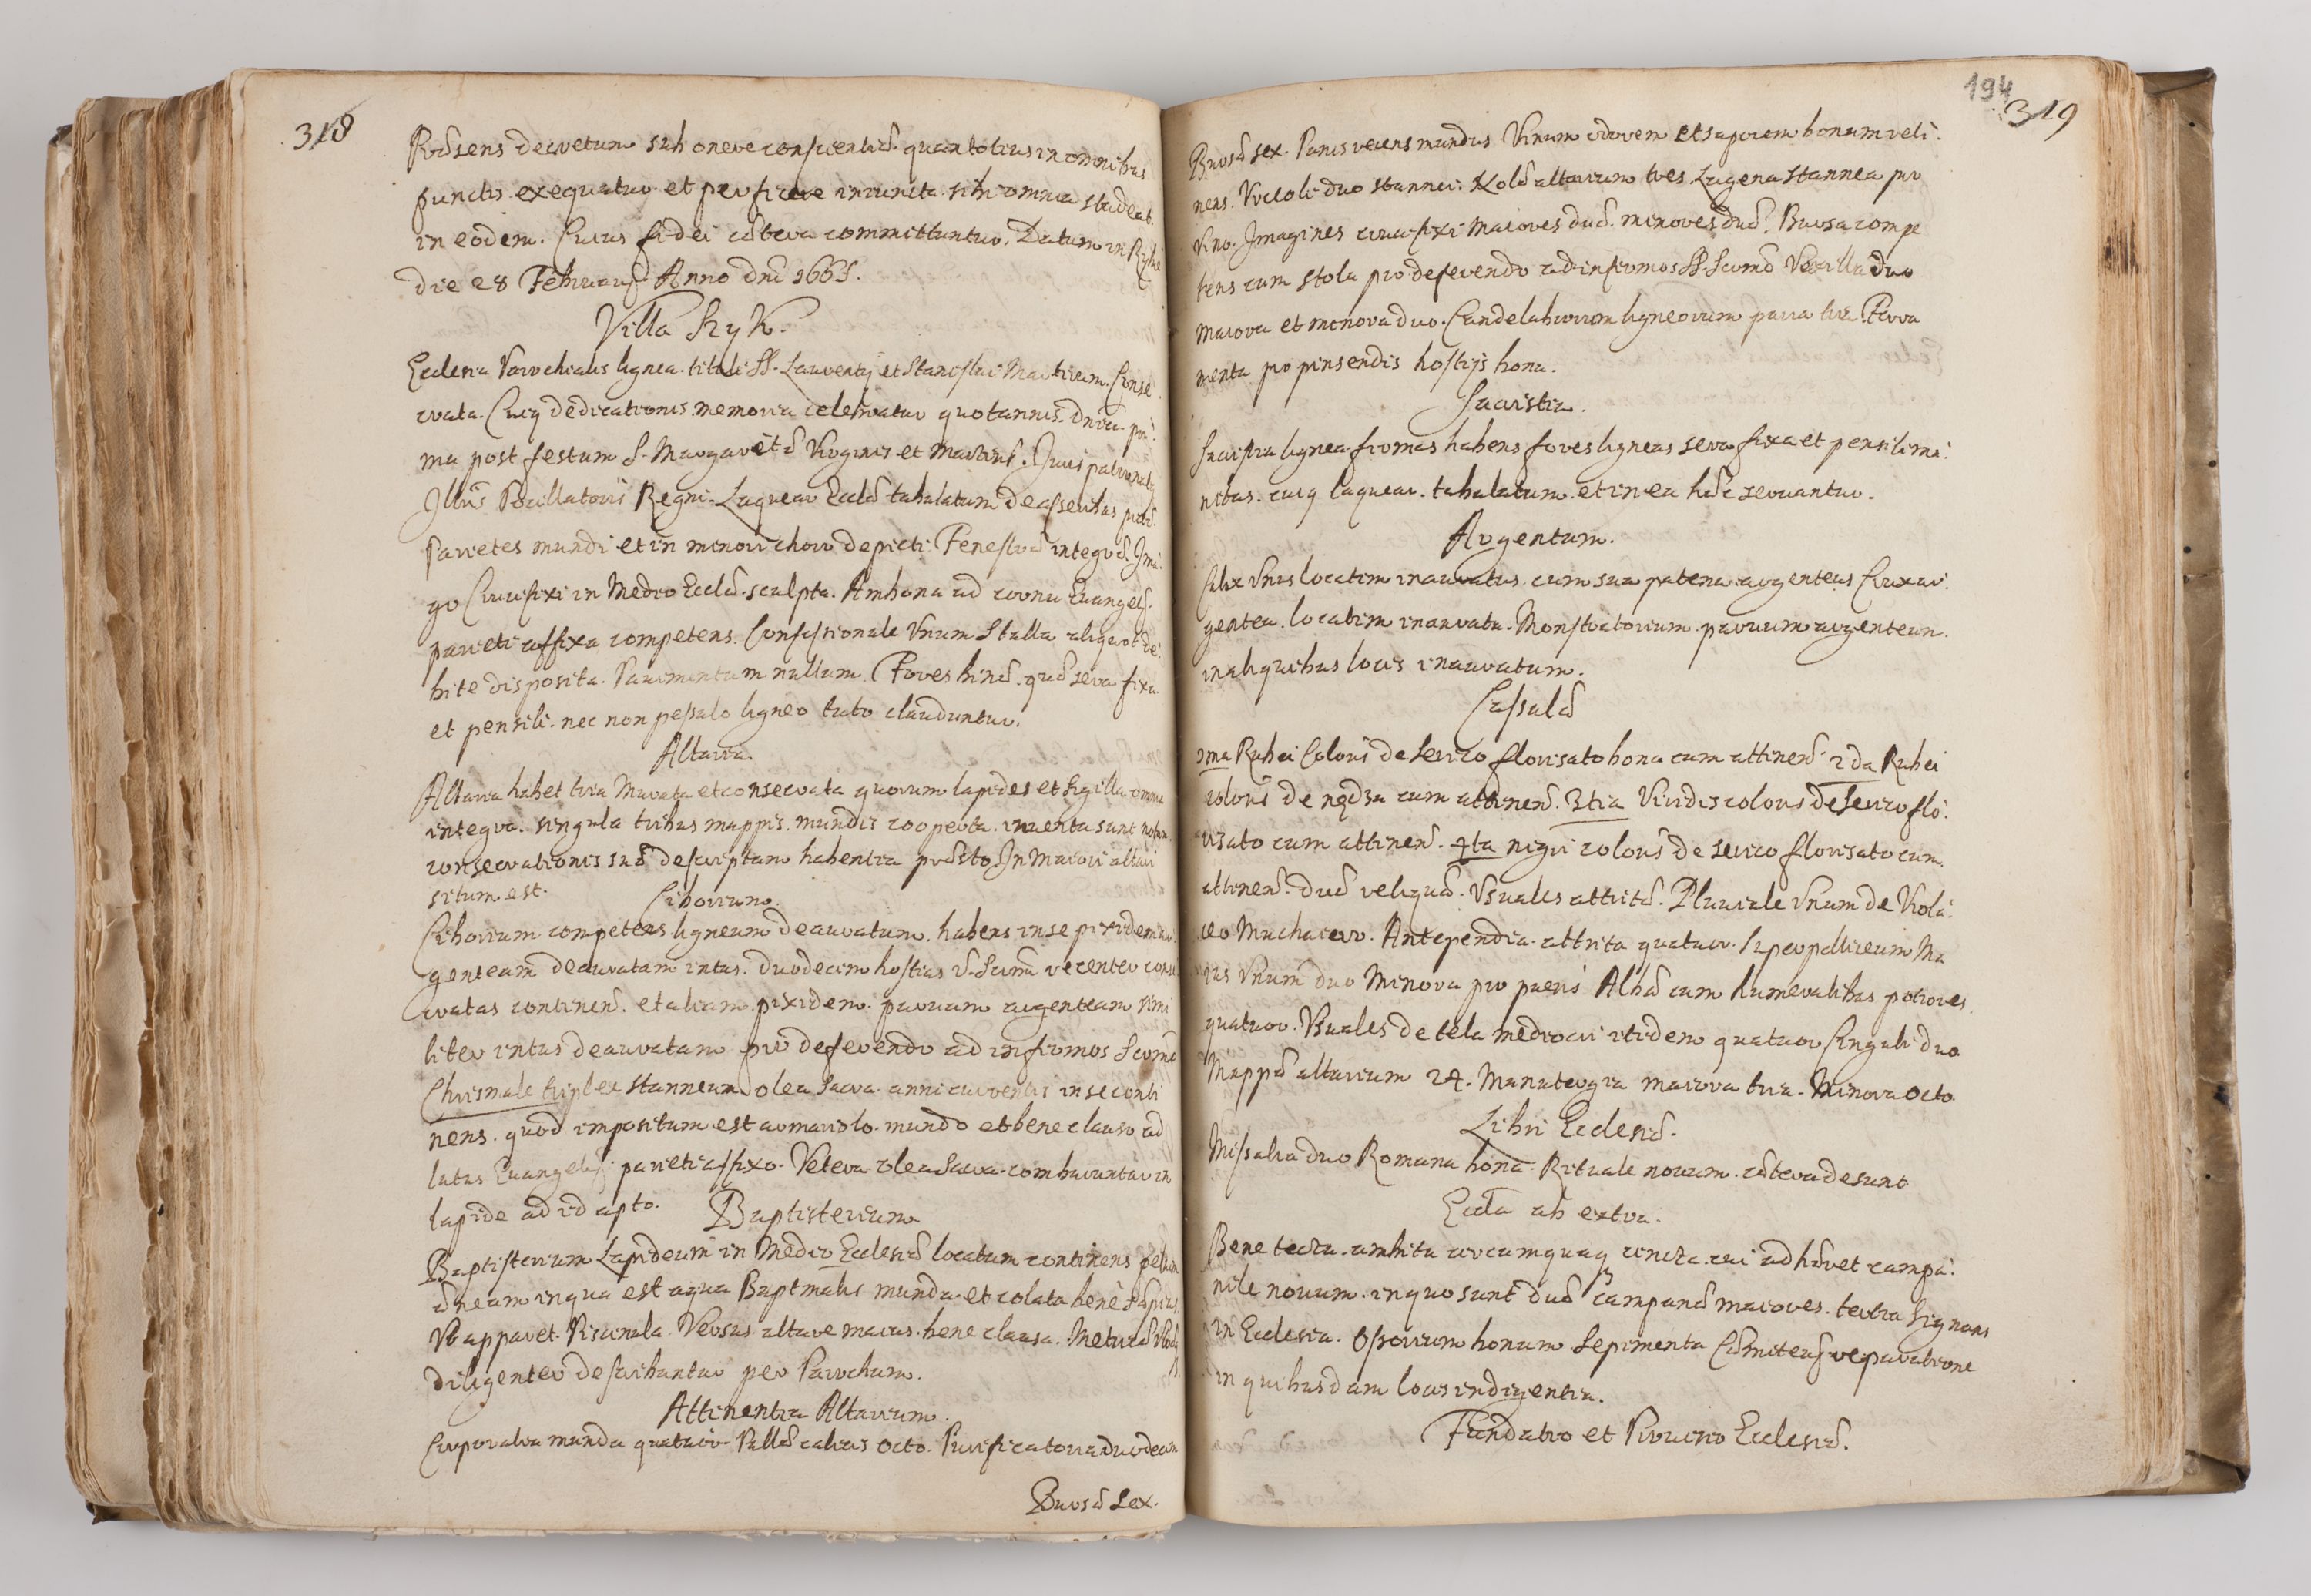 318
Præsens decretum sub onere conscientiæ quantotius in omnibus
punctis exequatur et perficere iniuncta sibi omnia studeat
in eodem. Cuius fidei cætera committuntur. Datum in
die 28 Februarij Anno Dni 1665.
Villa Łzyk.
Ecclesia Parochialis lignea tituli SS. Laurentij et Stanislai Martirum. Conse
crata. Cuiq dedicationis memoria celebratur quotannis Dnica pri:
ma post festum S. Margaritæ Virginis et Martiris. Juris patronat:
Illris Pocillatoris Regni. Laquear Ecclæ tabulatum de asseribus
Parietes mundi et in minori choro depicti. Fenestræ integræ. Ima:
go Crucifixi in Medio Ecclæ sculpta. Ambona ad cornu Evangelij
parieti affixa competens. Confessionale Vnum Stalla aliquot de:
bite disposita. Pauimentum nullum. Fores binæ quæ sera fixa
et pensili nec non pessulo ligneo tuto clauduntur.
Altaria.
Altaria habet tria Murata et consecrata quorum lapides et Sigilla omnia
integra. singula tribus mappis mundis cooperta inuenta sunt notam
consecrationis suæ descriptam habentia præsto. In Maiori altari
situm est. Ciborium.
Ciborium competens ligneum deauratum habens in se pixidem ar
genteam deauratam intus. duodecim hostias V. Scmi recenter conse
cratas continen. et aliam pixidem paruam argenteam simi
liter intus deauratam pro deferendo ad infirmos Scrmo
Chrismale triplex stanneum olea Sacra anni currentis in se conti
nens. quod impositum est armariolo mundo et bene clauso ad
latus Euangelij parieti affixo. Vetera olea Sacra comburuntur in
lapide ad id apto. Baptisterium
Baptisterium Lapideum in Medio Ecclesiæ locatum continens peluim
æneam in qua est aqua Baptmalis munda et colata bene
Vt apparet. Piscinula Versus altare maius bene clausa. Metricæ
diligenter describantur per Parochum.
Attinentia Altarium.
Corporalia munda quatuor Pallæ calicis octo. Purificatoria duodecim
Bursæ sex.
194
319
Bursæ sex. Panis recens mundus Vinum odorem et saporem bonum reti:
nens. Vrceoli duo stannei. Nolæ altarium tres Lagena stannea pro
Vino. Imagines crucifixi Maiores duæ minores duæ. Bursa compe
tens cum stola pro deferendo ad infirmos SS. Scrmo Vexilla duo
maiora et minora duo. Candelabrorum ligneorum paria tria Ferra
menta pro pinsendis hostijs bona.
Sacristia.
Sacristia lignea firmas habens fores ligneas sera fixa et pensili mi:
nitas. cuiq laquear tabulatum et in ea hæc seruantur.
Argentum.
Calix Vnus locatim inauratus cum sua patena argenteus Crux ar:
gentea locatim inaurata. Monstratorium paruum argenteum
in aliquibus locis inauratum.
Casulæ
1ma Rubei Coloris de Serico florisato bona cum attinen. 2da Rubei
coloris de cum attinen. 3tia Viridis coloris de serico flo:
risato cum attinen. 4ta nigri coloris de serico florisato cum
attinen. duæ reliquæ Vsuales attritæ. Pluuiale Vnum de Viola:
ceo Muchaiero. Antependia attrita quatuor. Superpelliceum Ma
ius Vnum duo Minora pro pueris Albæ cum humeralibus potiores
quatuor. Vsuales de tela mediocri itidem quatuor Cinguli duo
Mappæ altarium 24. Manutergia maiora tria. Minora octo
Libri Ecclesiæ.
Missalia duo Romana bona. Rituale nouum. cætera desunt
Eccla ab extra.
Bene tecta ambitu circumquaq cincta cui adhæret campa:
nile nouum. in quo sunt duæ campanæ maiores. tertia Signans
in Ecclesia. Ossorium bonum Sepimenta Cæmiterij reparatione
in quibusdam locis indigentia.
Fundatio et Prouisio Ecclesiæ.